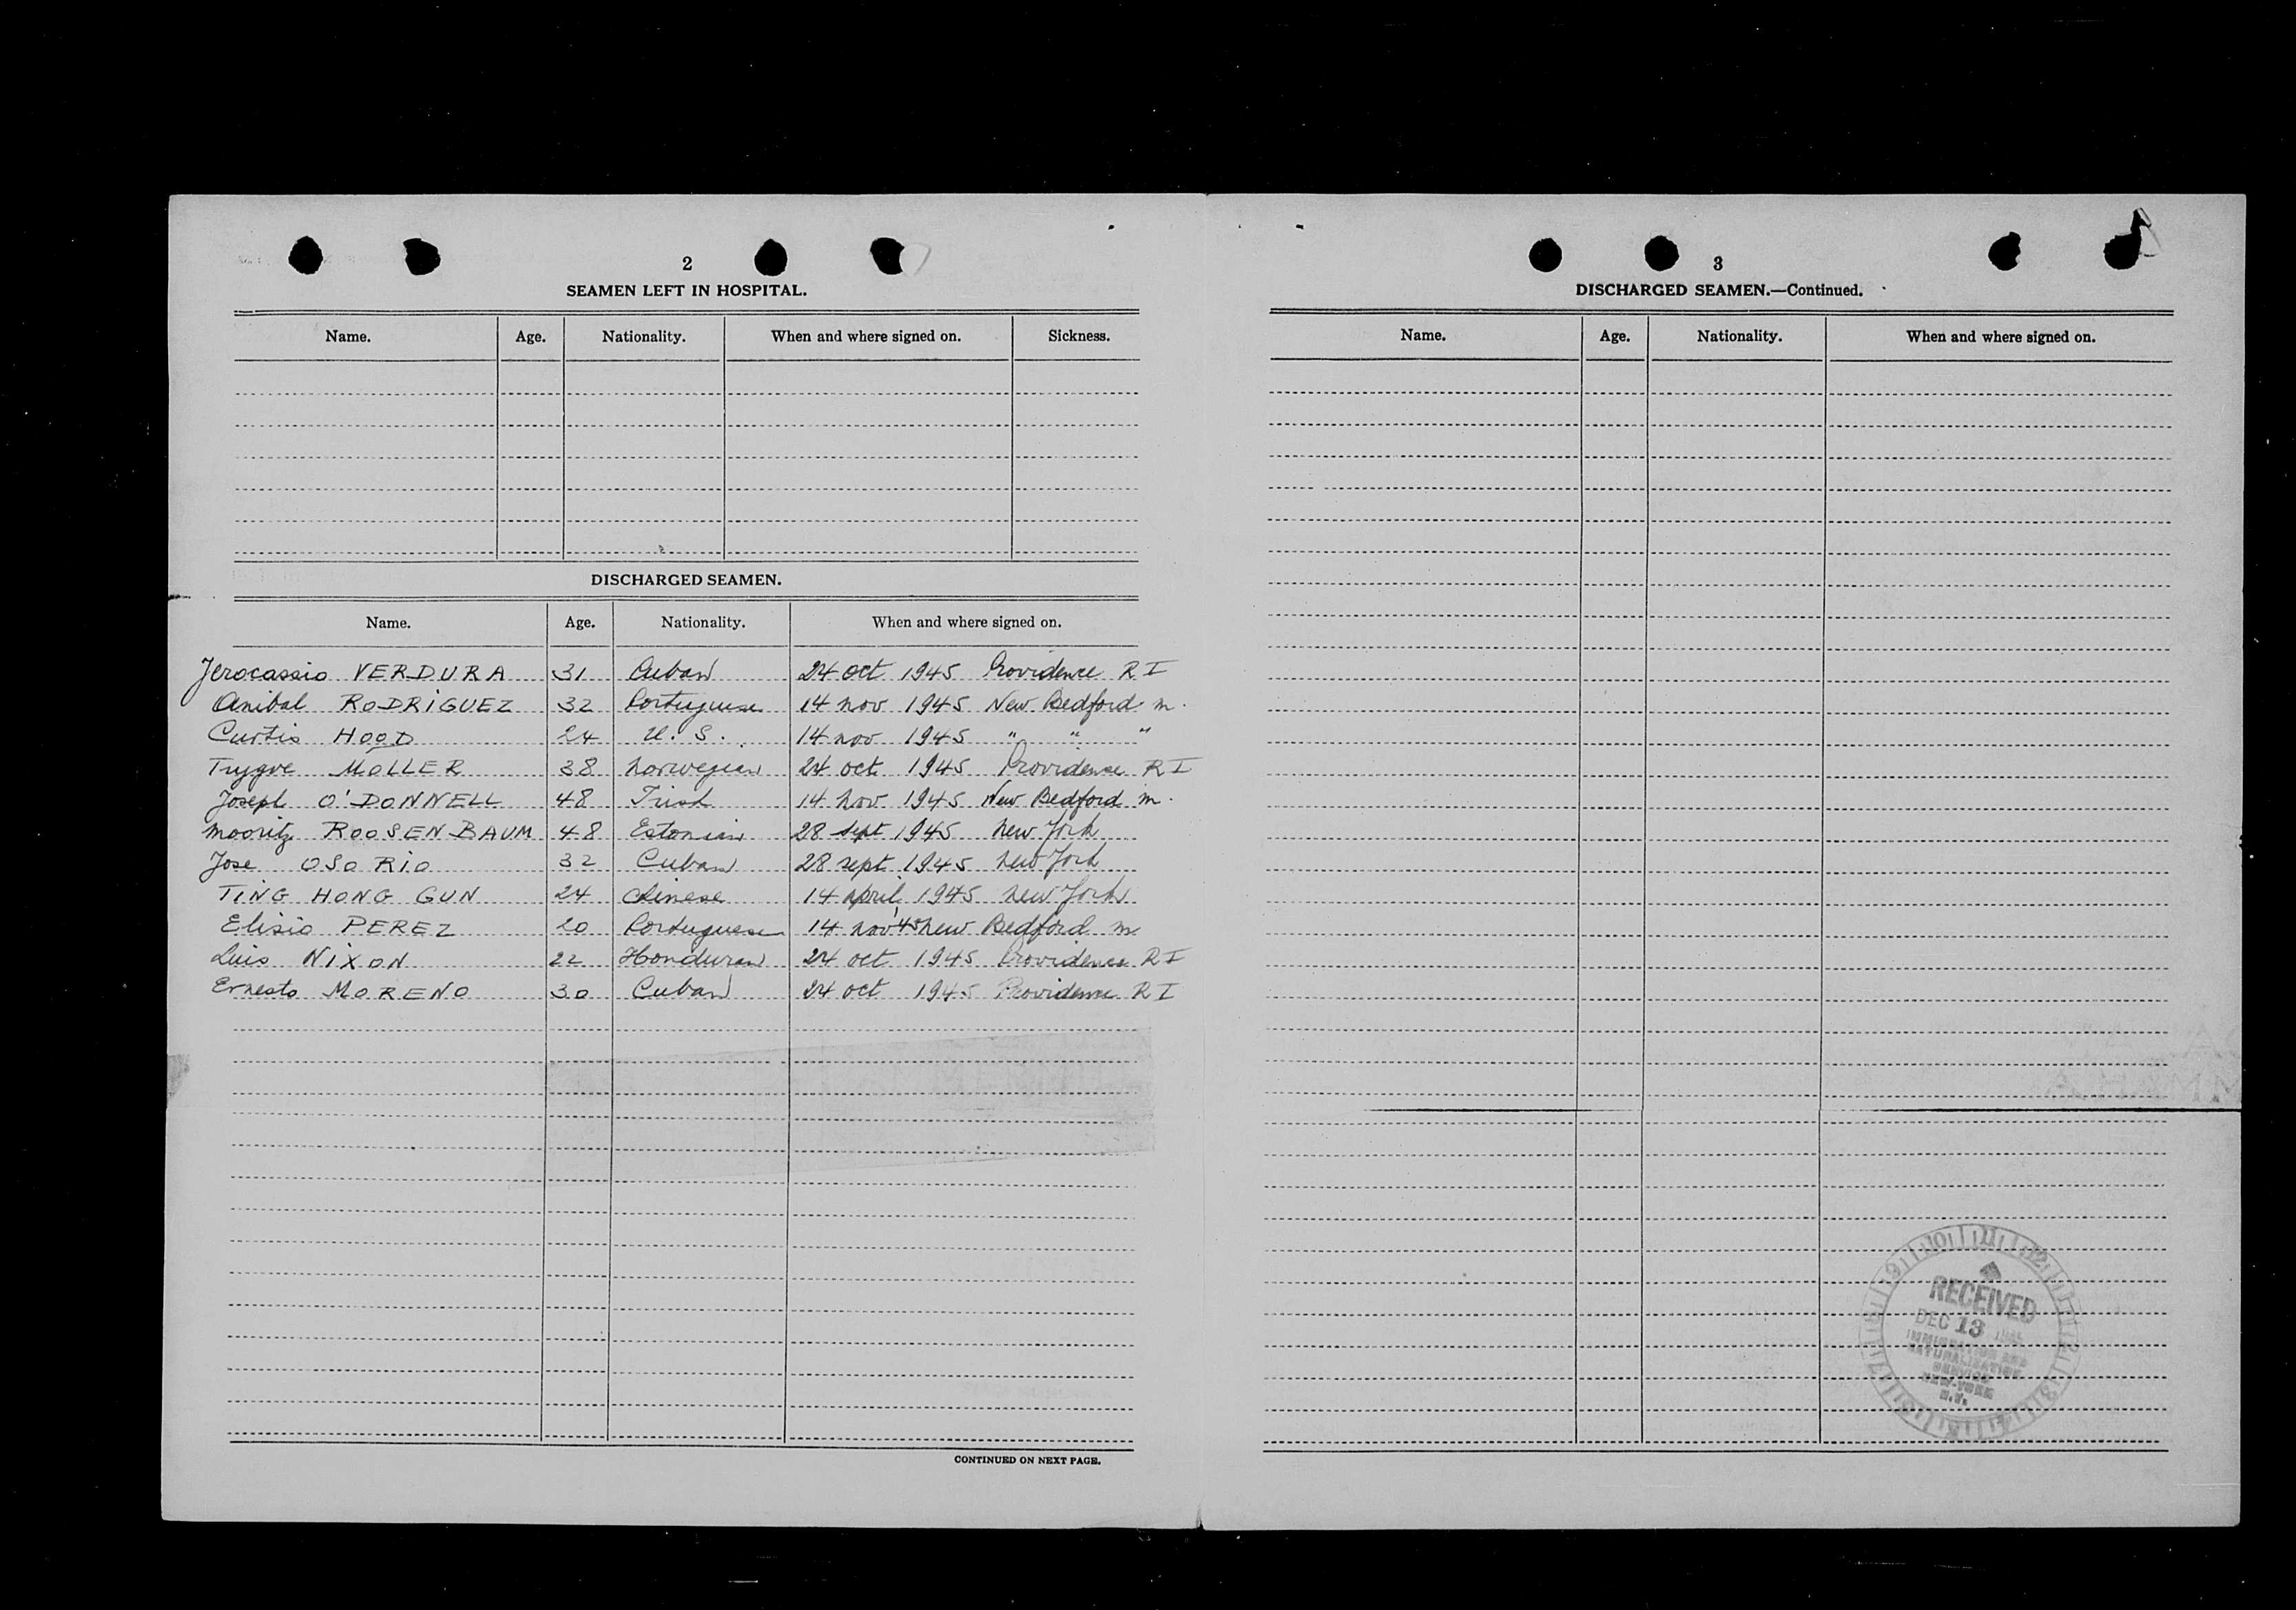 2
SEAMEN LEFT IN HOSPITAL.
Name. Age. Nationality. When and where signed on. Sickness.
DISCHARGED SEAMEN.
Name. Age. Nationality. When and where signed on.
Jerocassio VERDURA 31 Cuban 24 oct 1945 Providence R I
Anibal RODRIGUEZ 32 Portuguese 14 nov 1945 New Bedford m.
Curtis HOOD 24 U. S. 14 nov 1945 " " "
Trygve MOLLER 38 norwegian 24 oct 1945 Providence R I
Joseph O'DONNELL 48 Irish 14 nov 1945 New Bedford m.
mooritz ROOSENBAUM 48 Estonian 28 sept 1945 new York
Jose OSORIO 32 Cuban 28 sept 1945 new York
TING HONG GUN 24 chinese 14 april 1945 new York
Elisio PEREZ 20 Portuguese 14 nov '45 new Bedford m
Luis NIXON 22 Honduran 24 oct 1945 Providence R I
Ernesto MORENO 30 Cuban 24 oct 1945 Providence R I
CONTINUED ON NEXT PAGE.
3
DISCHARGED SEAMEN.—Continued.
Name. Age. Nationality. When and where signed on.
RECEIVED
DEC 13
IMMIGRATION AND
NATURALIZATION
SERVICE
NEW-YORK
N.Y.